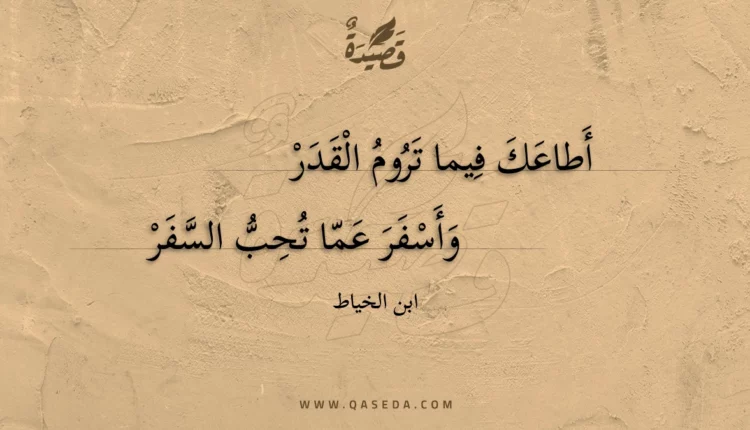 قَصِيدَةٌ
أَطاعَكَ فِيما تَرُومُ الْقَدَرْ
وَأَسْفَرَ عَمّا تُحِبُّ السَّفَرْ
ابن الخياط
WWW.QASEDA.COM